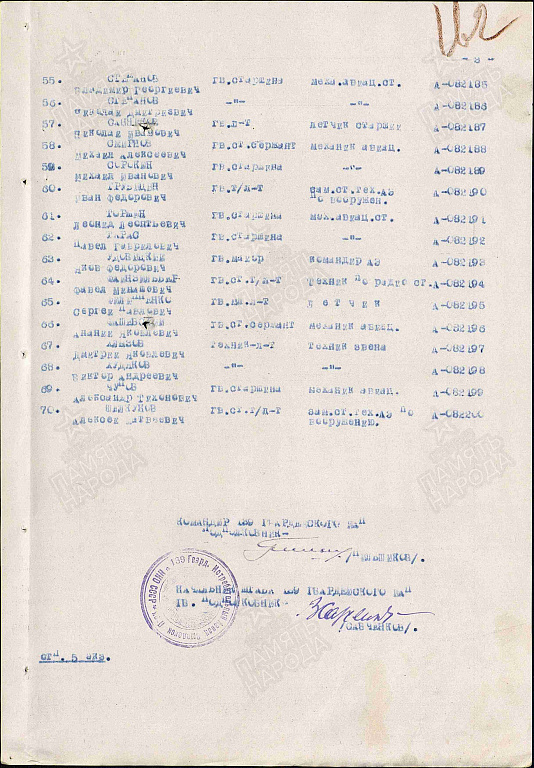 162
- 3 -
55. СТЕПАНОВ гв.старшина меха.авиац.ст. А-082185
Владимир Георгиевич
56. СТЕПАНОВ -"- -"- А-082186
Николай Дмитриевич
57. гв.л-т летчик старший А-082187
Николай Иванович
58. СМИРНОВ гв.ст.сержант механик авиац. А-082188
Михаил Алексеевич
59. СОРОКИН гв.старшина А-082189
Михаил Иванович
60. гв.т/л-т зам.ст.тех.АЭ А-082190
Иван Федорович по вооружен.
61. ТОРШИН гв.старшина мех.авиац.ст. А-082191
Леонид Леонтьевич
62. ТАРАС гв.старшина -"- А-082192
Павел Гаврилович
63. УДОВИЦКИЙ гв.майор командир АЭ А-082193
Яков Федорович
64. гв.ст.т/л-т техник по радио ст. А-082194
65. гв.мл.л-т летчик А-082195
Сергей Павлович
66. гв.ст.сержант механик авиац. А-082196
Ананий Яковлевич
67. техник-л-т техник звена А-082197
Дмитрий Яковлевич
68. ХУДЯКОВ -"- -"- А-082198
Виктор Андреевич
69. ЧУПОВ гв.старшина механик авиац. А-082199
Александр Тихонович
70. гв.ст.т/л-т зам.ст.тех.АЭ по А-082200
Алексей Матвеевич вооружению.
КОМАНДИР 139 ГВАРДЕЙСКОГО ИАП
ПОДПОЛКОВНИК-
/ПИЛЬЩИКОВ/.
НАЧАЛЬНИК ШТАБА 139 ГВАРДЕЙСКОГО ИАП
ГВ. ПОДПОЛКОВНИК-
/САВЧЕНКОВ/.
отп. 5 экз.
НКО СССР * 139 Гвард. Истребительный Авиац.
ПАМЯТЬ НАРОДА